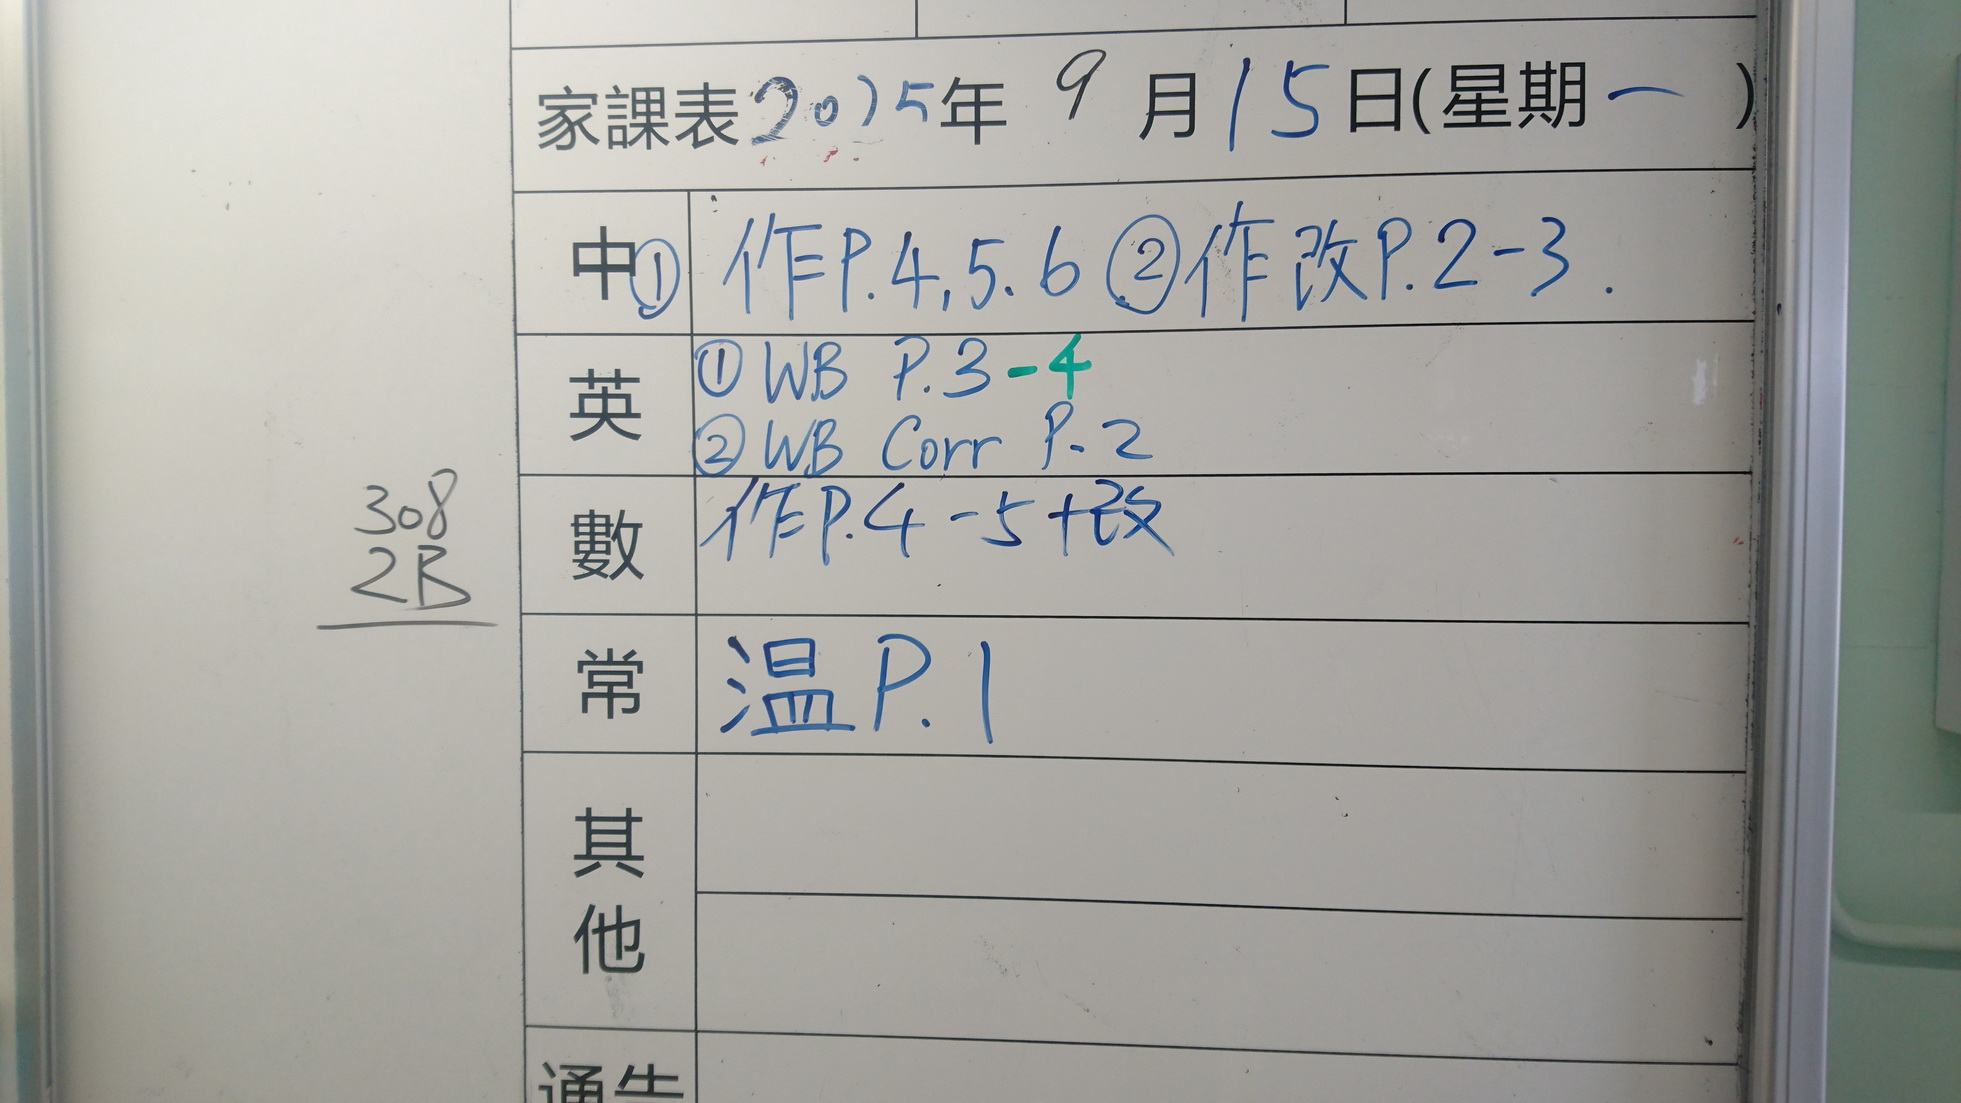 家課表2025年 9 月15日(星期一 )
中① 作P.4,5.6 ②作改P.2-3.
英 ① WB P.3-4
② WB Corr P.2
數 作P.4-5+改
常 温P.1
其他
通告
308
2B